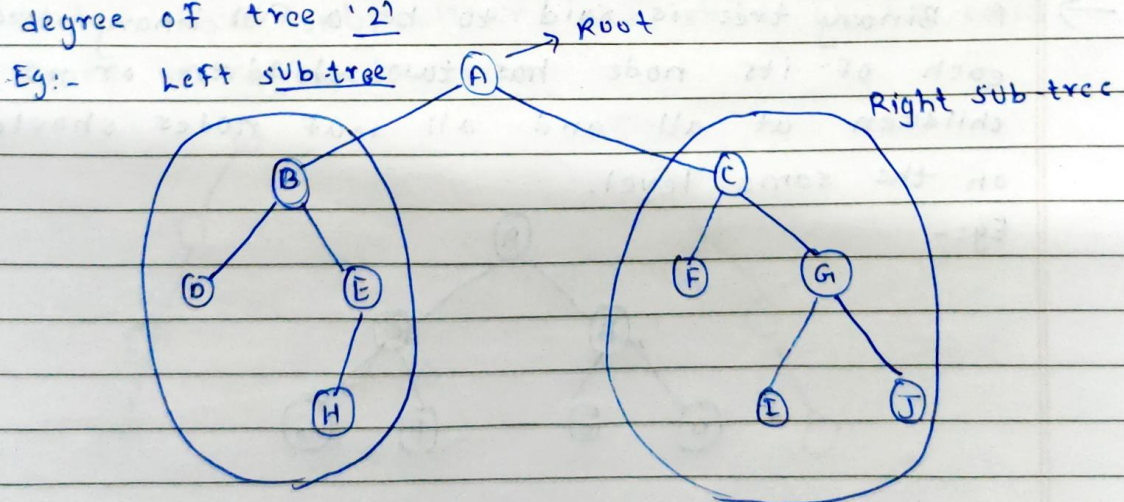 degree of tree '2'
→ Root
Eg:- Left subtree
A
Right sub tree
B
C
D
E
F
G
H
I
J